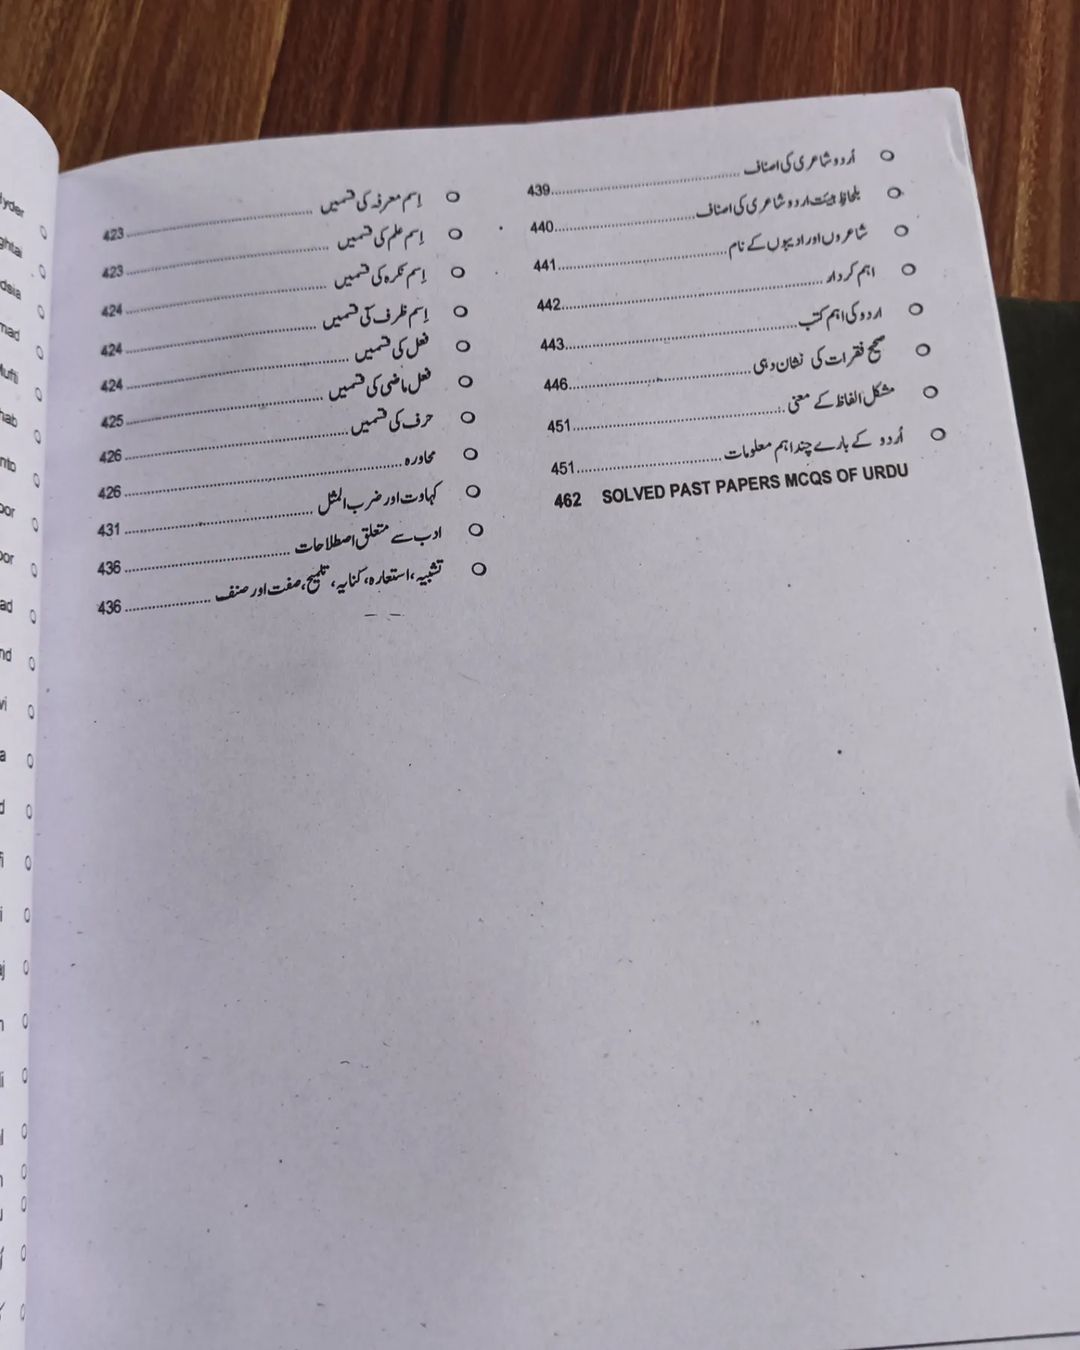 اِسم معرفہ کی قسمیں ........ 423
اِسم علم کی قسمیں ........ 423
اِسم نکرہ کی قسمیں ........ 424
اِسم ظرف کی قسمیں ........ 424
فعل کی قسمیں ........ 424
فعل ماضی کی قسمیں ........ 425
حرف کی قسمیں ........ 426
محاورہ ........ 426
کہاوت اور ضرب المثل ........ 431
ادب سے متعلق اصطلاحات ........ 436
تشبیہ، استعارہ، کنایہ، تلمیح، صفت اور صنف ........ 436
اُردو شاعری کی اصناف ........ 439
بلحاظ ہیئت اردو شاعری کی اصناف ........ 440
شاعروں اور ادیبوں کے نام ........ 441
اہم کردار ........ 442
اردو کی اہم کتب ........ 443
صحیح فقرات کی نشان دہی ........ 446
مشکل الفاظ کے معنی ........ 451
اُردو کے بارے چند اہم معلومات ........ 451
462 SOLVED PAST PAPERS MCQS OF URDU